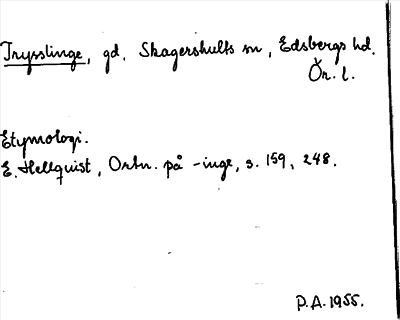 Trysslinge, gd, Skagershults sn, Edsbergs hd.
Ör. l.
Etymologi.
E. Hellquist, Ortn. på -inge, s. 159, 248.
P.A. 1955.